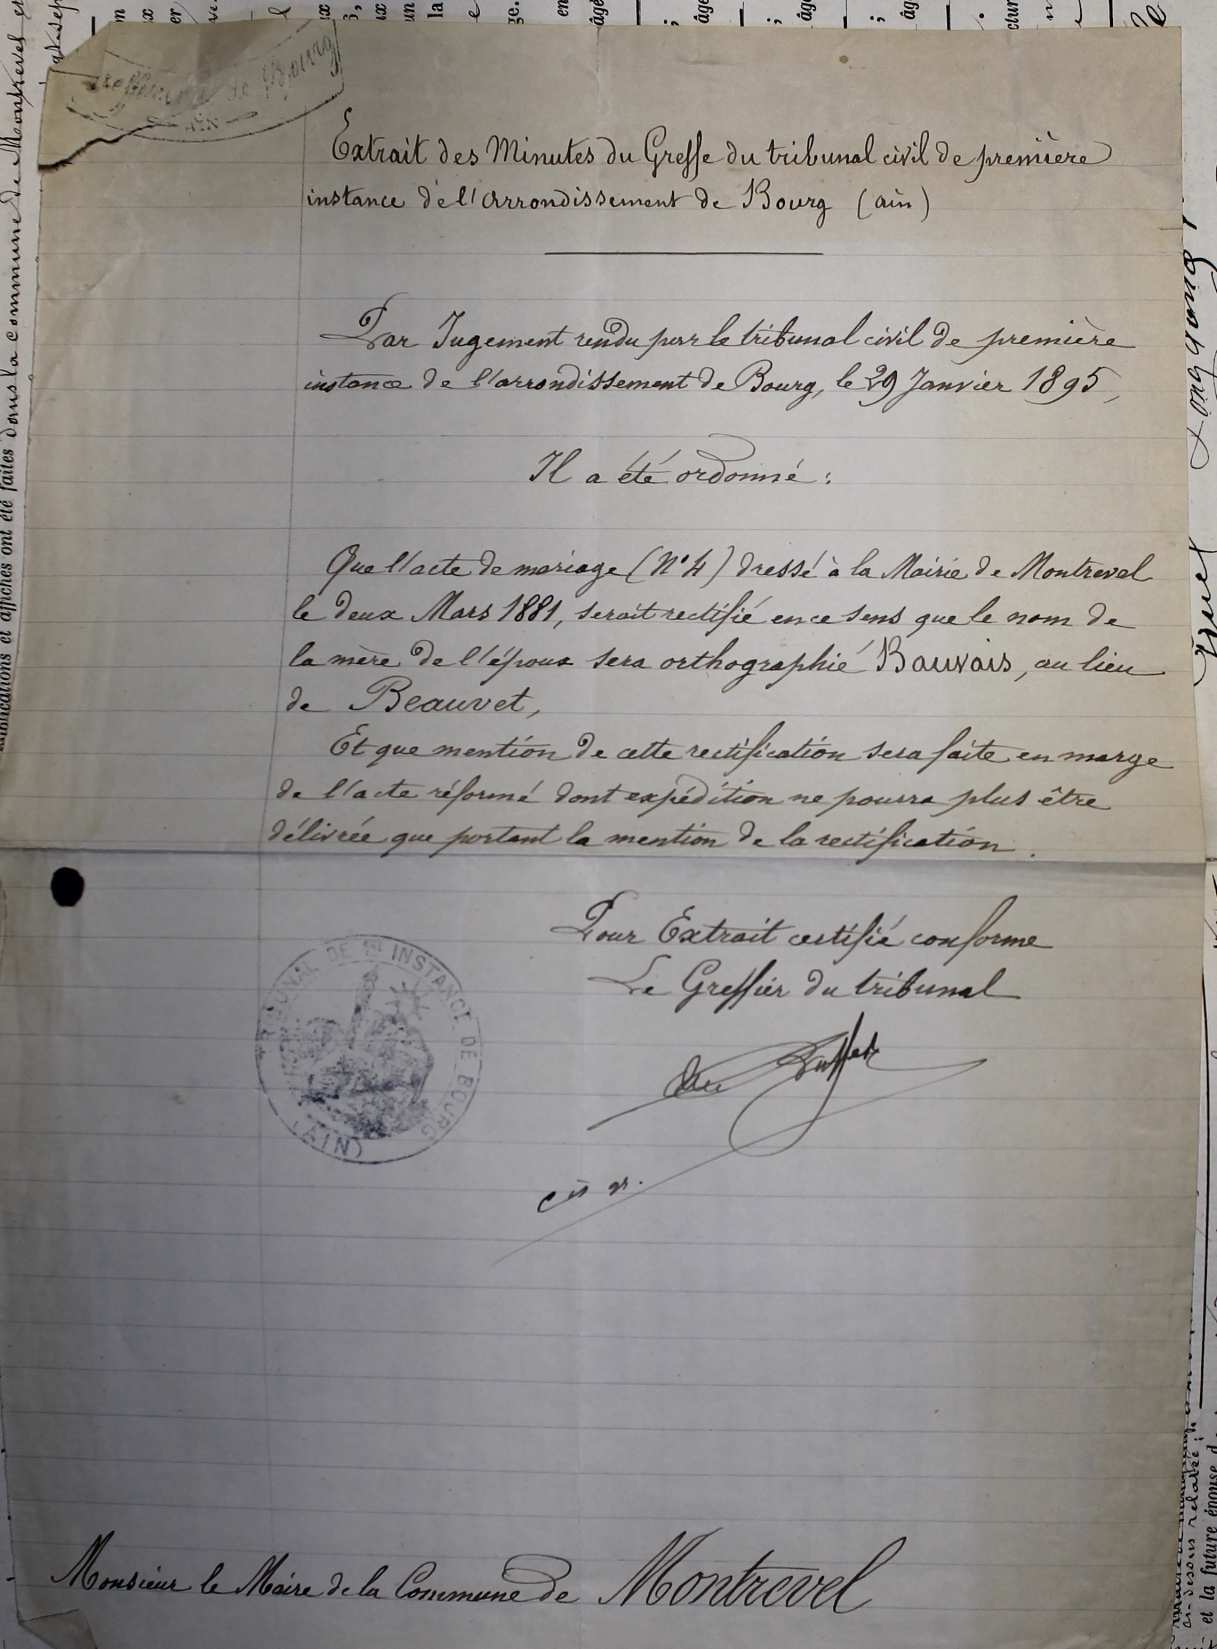 de Bourg
AIN
Extrait des Minutes du Greffe du tribunal civil de première
instance de l'arrondissement de Bourg (ain)
Par Jugement rendu par le tribunal civil de première
instance de l'arrondissement de Bourg, le 29 Janvier 1895,
Il a été ordonné :
Que l'acte de mariage (N° 4) dressé à la Mairie de Montrevel
le deux Mars 1881, serait rectifié en ce sens que le nom de
la mère de l'époux sera orthographié Bauvais, au lieu
de Beauvet,
Et que mention de cette rectification sera faite en marge
de l'acte réformé dont expédition ne pourra plus être
délivrée que portant la mention de la rectification.
Pour Extrait certifié conforme
Le Greffier du tribunal
TRIBUNAL DE 1re INSTANCE DE BOURG
(AIN)
Monsieur le Maire de la Commune de Montrevel
publications et affiches ont été faites dans la commune de Montrevel et
et la future épouse